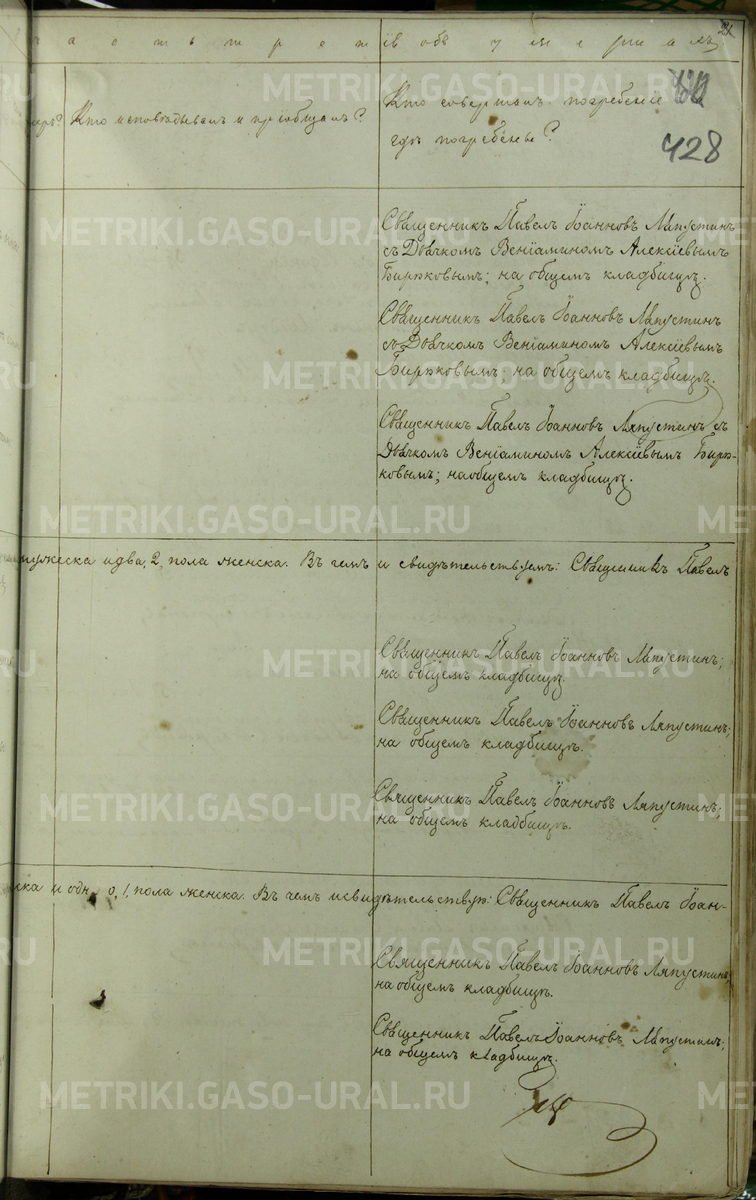 часть третія объ умершихъ
Кто исповѣдывалъ и пріобщалъ?
Кто совершалъ погребеніе
гдѣ погребены?
428
Священникъ Павелъ Іоанновъ Ляпустинъ
съ Дьячкомъ Веніаминомъ Алексіевымъ
Бирюковымъ; на общемъ кладбищѣ.
Священникъ Павелъ Іоанновъ Ляпустинъ
съ Дьячкомъ Веніаминомъ Алексіевымъ
Бирюковымъ; на общемъ кладбищѣ.
Священникъ Павелъ Іоанновъ Ляпустинъ съ
Дьячкомъ Веніаминомъ Алексіевымъ Бирю-
ковымъ; на общемъ кладбищѣ.
мужеска и два, 2, пола женска. Въ чемъ и свидѣтельствуемъ: Священникъ Павелъ
Священникъ Павелъ Іоанновъ Ляпустинъ;
на общемъ кладбищѣ.
Священникъ Павелъ Іоанновъ Ляпустинъ;
на общемъ кладбищѣ.
Священникъ Павелъ Іоанновъ Ляпустинъ;
на общемъ кладбищѣ.
ска и одного, 1, пола женска. Въ чемъ и свидѣтельствую: Священникъ Павелъ Іоан-
Священникъ Павелъ Іоанновъ Ляпустинъ;
на общемъ кладбищѣ.
Священникъ Павелъ Іоанновъ Ляпустинъ;
на общемъ кладбищѣ.
METRIKI.GASO-URAL.RU